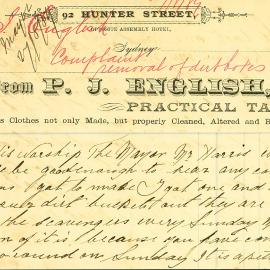 92 HUNTER STREET,
OPPOSITE ASSEMBLY HOTEL,
Sydney
English
Complaint
removal of dirt boxes
From P. J. ENGLISH,
PRACTICAL TA
s Clothes not only Made, but properly Cleaned, Altered and R
is Worship The Mayor Mr Harris
be good enough to hear any co
I got to made I got one and
dirt bucket but they are
the scavengers every Sunday
of it is because you have
round on Sunday it is a pie